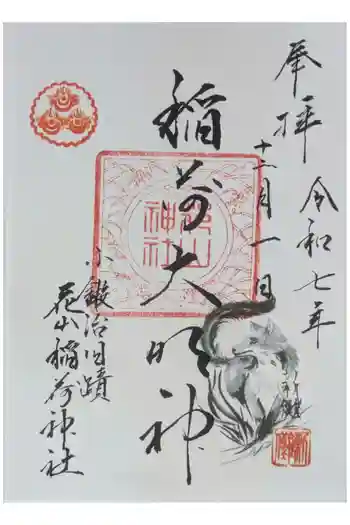 奉拝
令和七年
十一月一日
稲荷大明神
小鍛冶旧蹟
花山稲荷神社